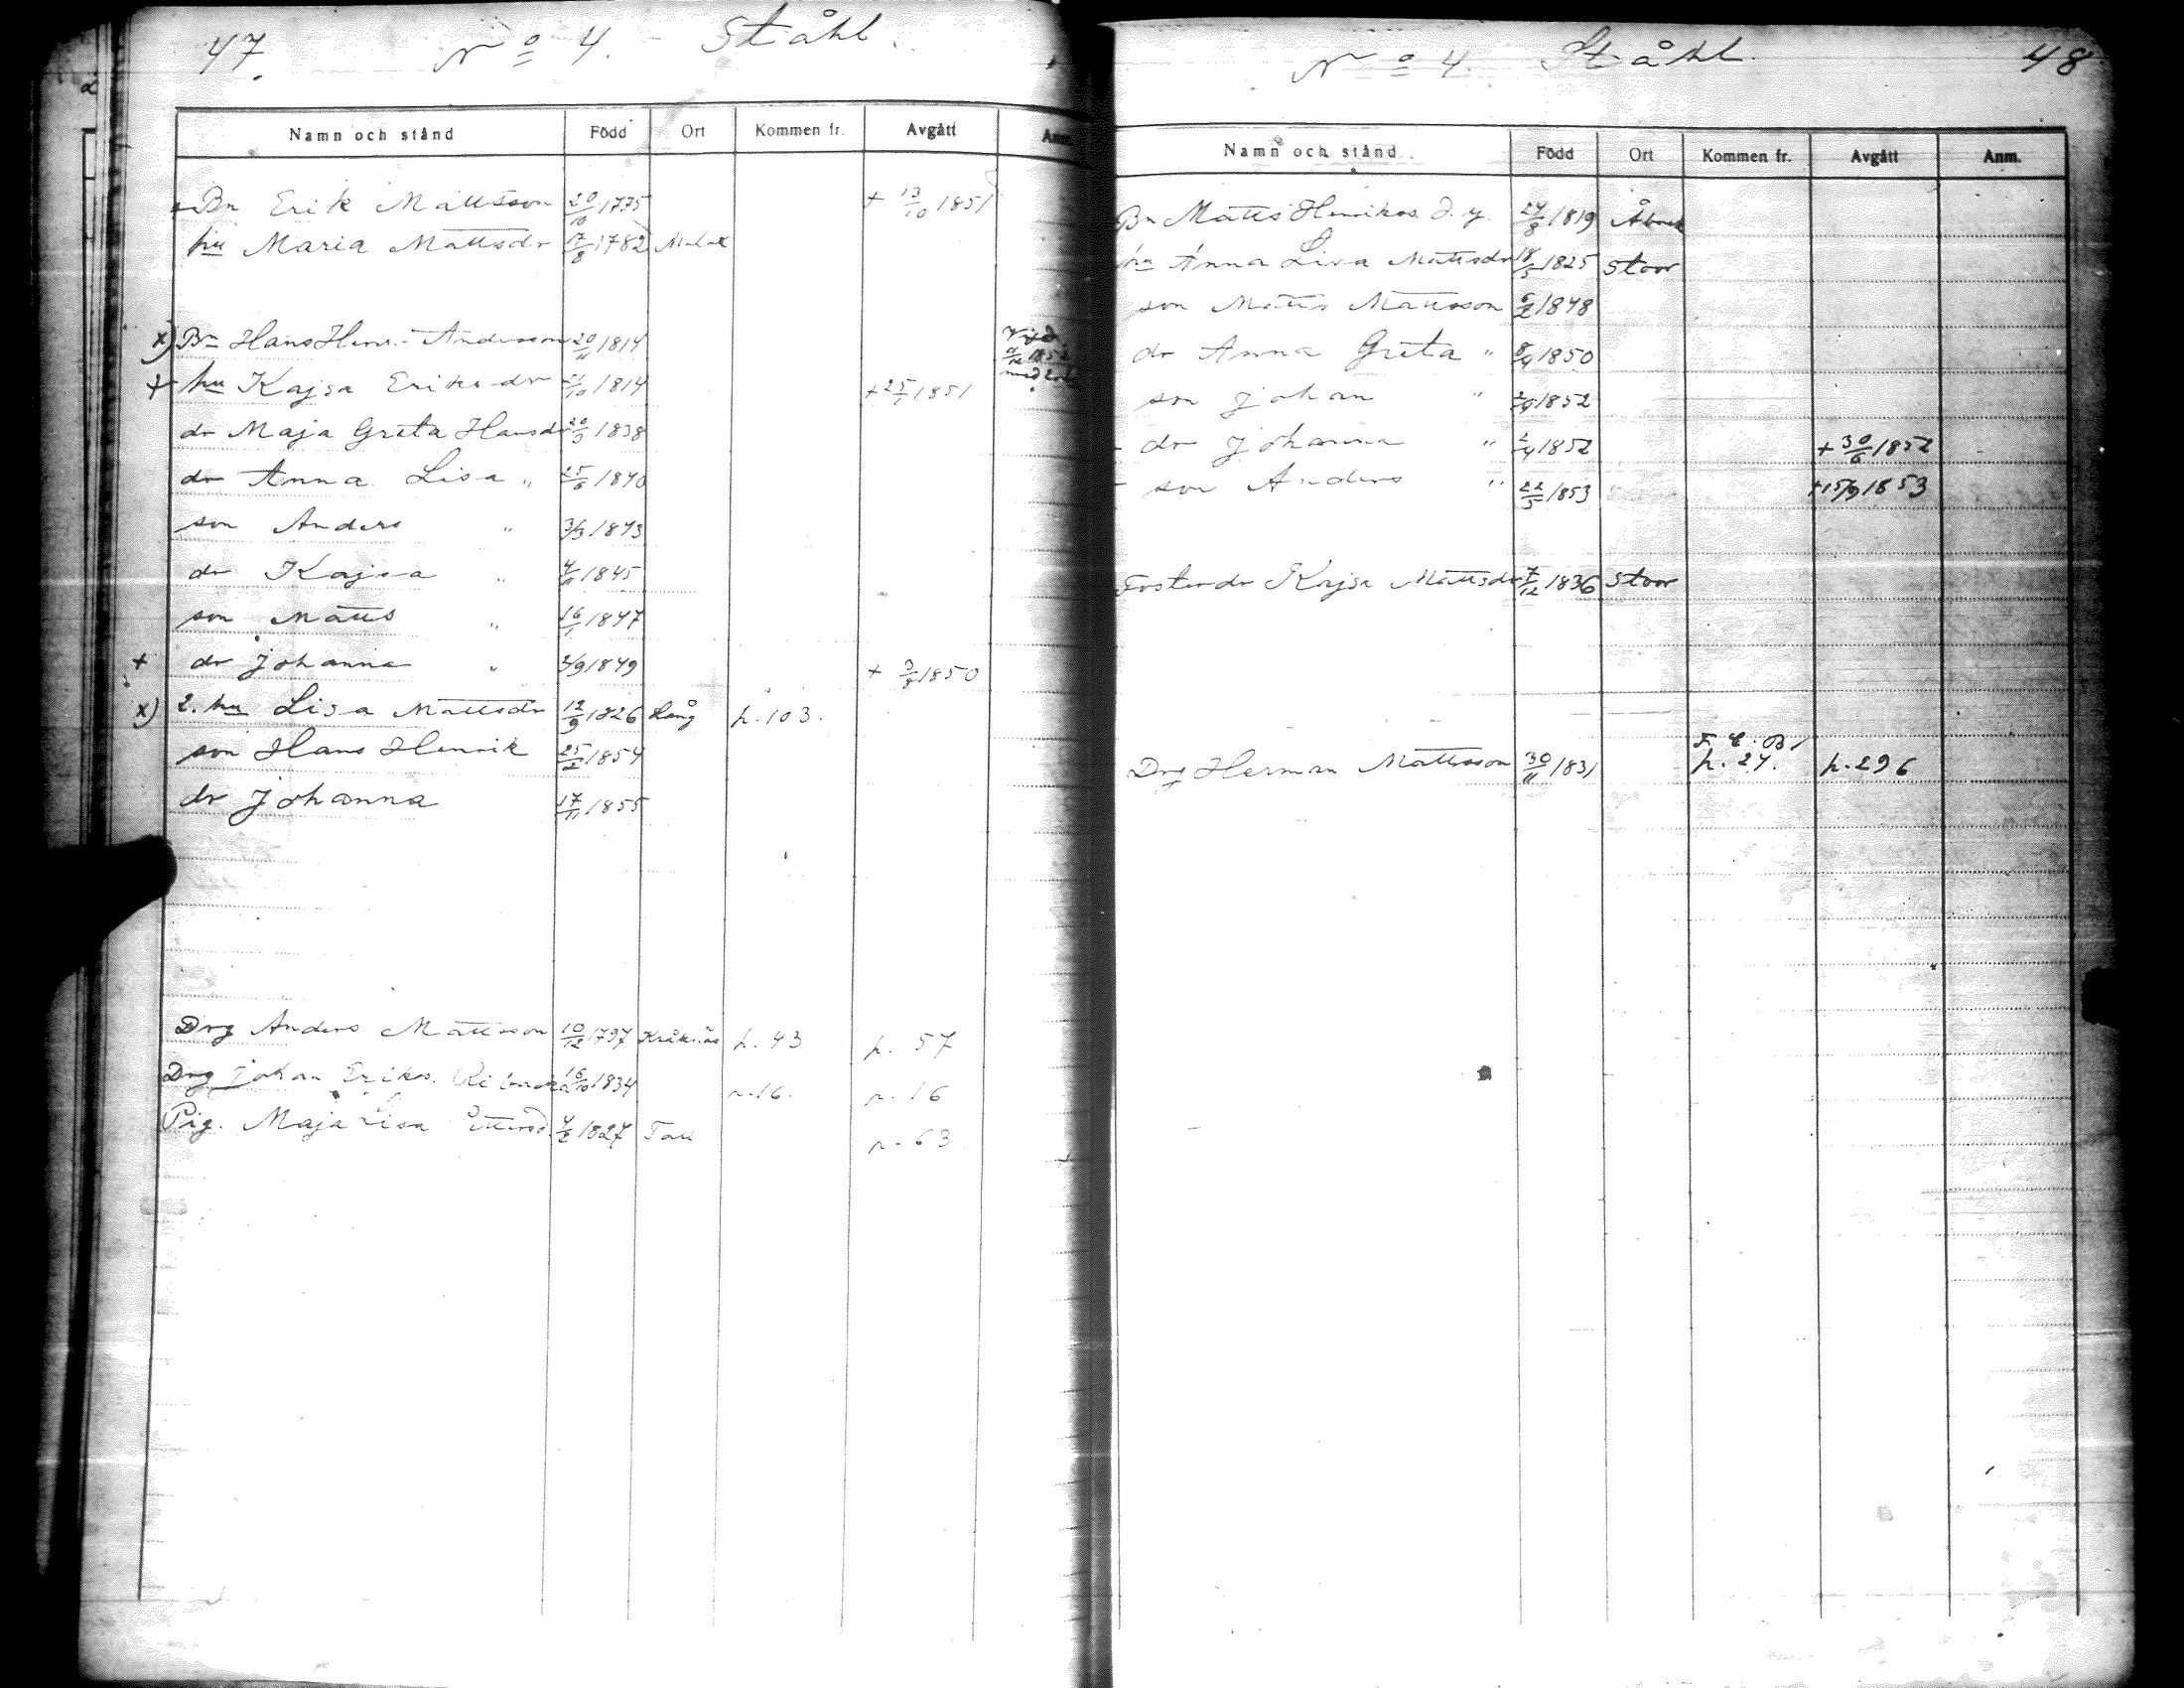 47. No 4. Ståhl.
Namn och stånd Född Ort Kommen fr. Avgått Anm.
+ Bn Erik Mattsson 20/10 1775 + 13/10 1851
hu Maria Mattsdr 17/8 1782 Malax
x) Bn Hans Henr. Andersson 20/11 1814 Vigd 1852 med
+ hu Kajsa Eriksdr 21/10 1814 + 25/1 1851
dr Maja Greta Hansdr 20/3 1838
dr Anna Lisa " 25/6 1840
son Anders " 3/3 1843
dr Kajsa " 1845
son Matts " 16/1 1847
+ dr Johanna " 3/9 1849 + 3/8 1850
x) 2. hu Lisa Mattsdr 12/9 1826 Lång p. 103.
son Hans Henrik 25/2 1854
dr Johanna 17/11 1855
Drg Anders Mattsson 10/12 1797 Kråknäs p. 43 p. 57
Drg Johan Eriks. 1834 p. 16. p. 16
Pig. Maja Lisa 4/2 1827 Tall p. 63
No 4. Ståhl. 48
Namn och stånd Född Ort Kommen fr. Avgått Anm.
Bn Matts Henrikss. d. y. 24/8 1819
hu Anna Lisa Mattsdr 18/5 1825 Stoor
son Matts Mattsson 6/2 1848
dr Anna Greta " 8/4 1850
son Johan " 2/4 1852
dr Johanna " 2/4 1852 + 30/6 1852
son Anders " 22/5 1853 + 15/9 1853
Fosterdr Kajsa Mattsdr 7/12 1836 Stoor
Drg Herman Mattsson 30/11 1831 p. 27. p. 296